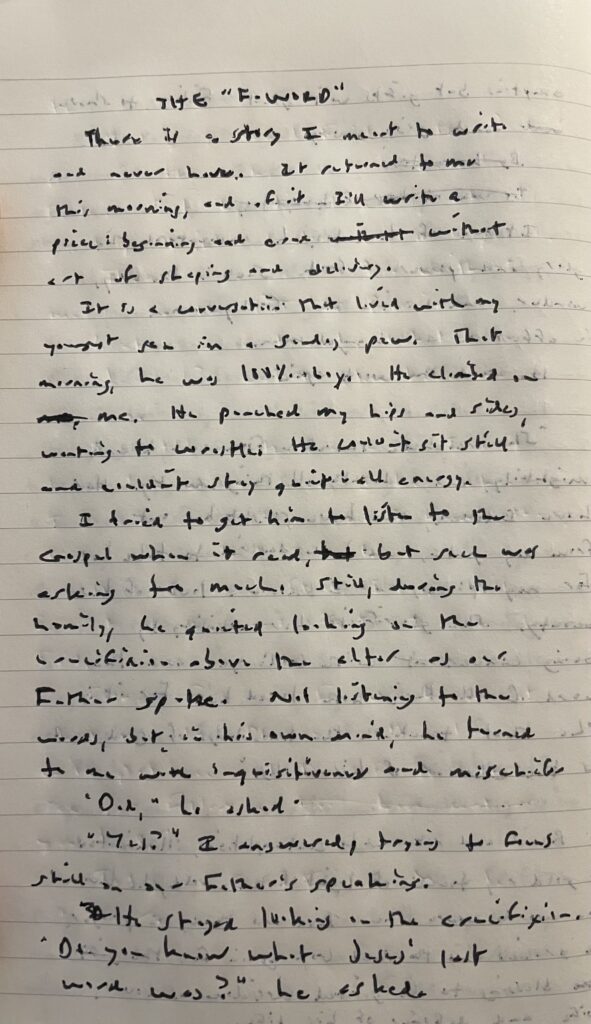 THE "F-WORD"
There is a story I meant to write
and never have. It returned to me
this morning, and of it I'll write a
piece: beginning and end without
art of shaping and delivery.
It is a conversation that lived with my
youngest son in a Sunday pew. That
morning, he was 100% boy. He climbed on
me. He punched my hips and sides,
wanting to wrestle. He couldn't sit still
and couldn't stay quiet: all energy.
I tried to get him to listen to the
Gospel when it read, but such was
asking too much. Still, during the
homily, he quieted looking on the
crucifixion above the altar as our
Father spoke. Not listening to the
words, but in his own mind, he turned
to me with inquisitiveness and mischief.
"Dad," he asked.
"Yes?" I answered, trying to focus
still on our Father's speaking.
He stayed looking on the crucifixion.
"Do you know what Jesus' last
word was?" he asked.